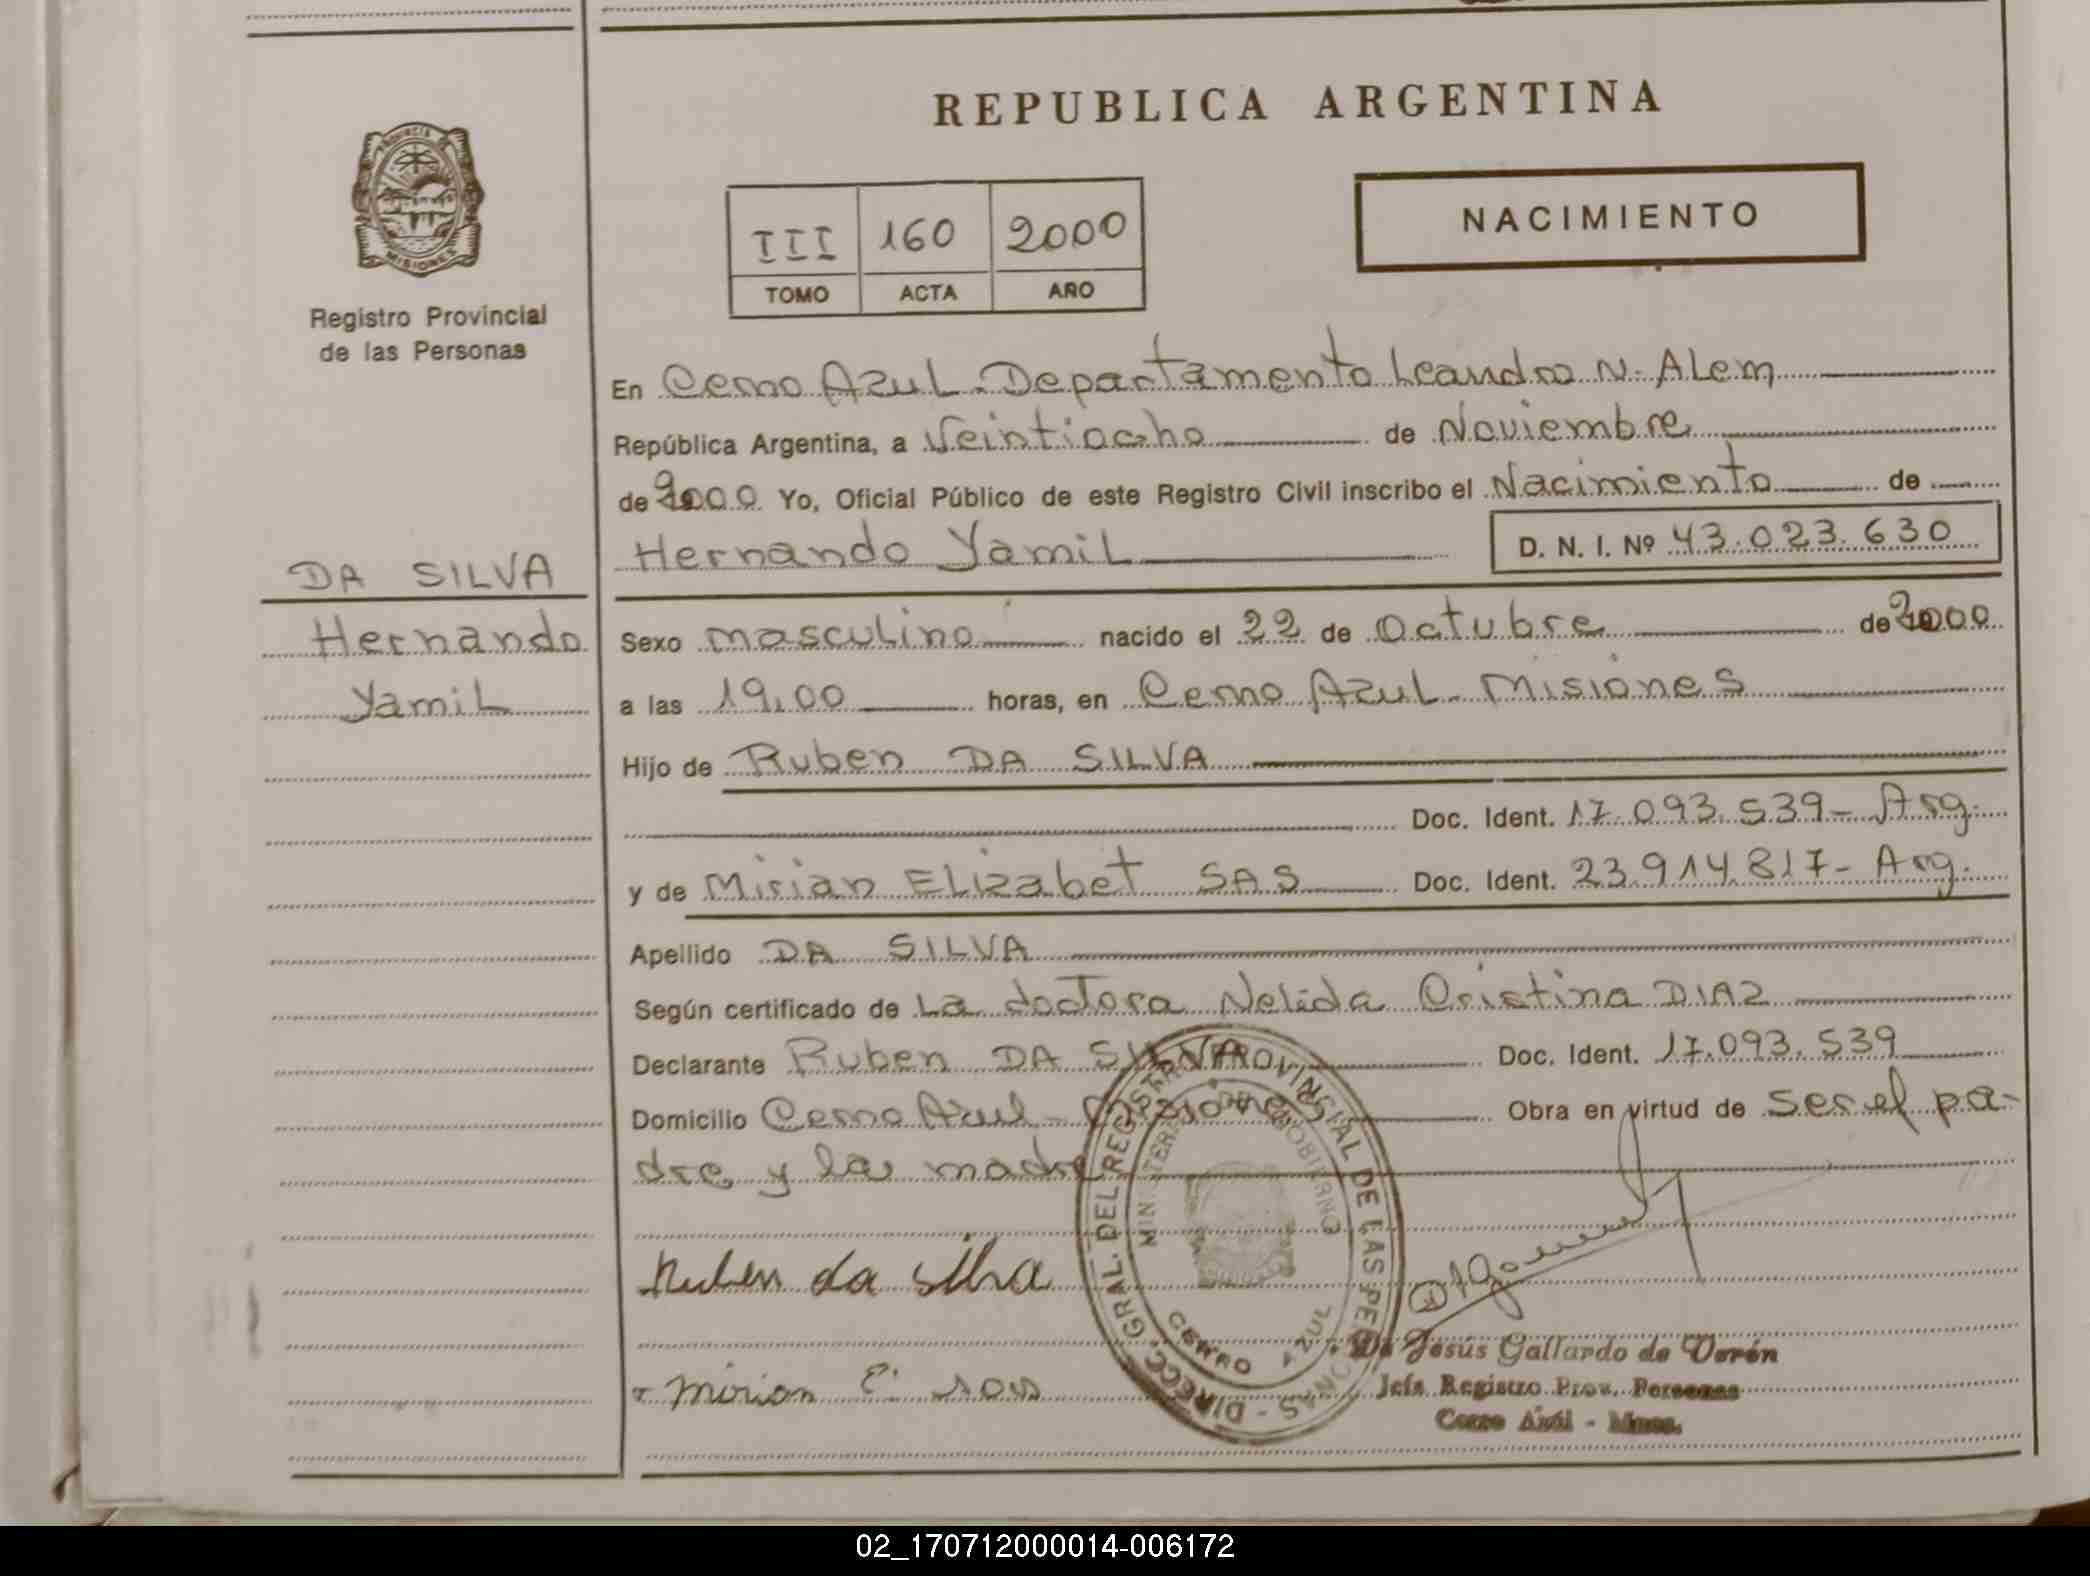 REPUBLICA ARGENTINA
PROVINCIA DE MISIONES
Registro Provincial
de las Personas
III 160 2000
TOMO ACTA AÑO
NACIMIENTO
En Cerro Azul - Departamento Leandro N. Alem
República Argentina, a Veintiocho de Noviembre
de 2000 Yo, Oficial Público de este Registro Civil inscribo el Nacimiento de
Hernando Yamil D. N. I. Nº 43.023.630
DA SILVA
Hernando
Yamil
Sexo masculino nacido el 22 de Octubre de 2000
a las 19,00 horas, en Cerro Azul - Misiones
Hijo de Ruben DA SILVA
Doc. Ident. 17.093.539 - Arg.
y de Mirian Elizabet SAS Doc. Ident. 23.914.817 - Arg.
Apellido DA SILVA
Según certificado de La doctora Nelida Cristina DIAZ
Declarante Ruben DA SILVA Doc. Ident. 17.093.539
Domicilio Cerro Azul - Misiones Obra en virtud de ser el pa-
dre y la madre
Ruben da silva
Mirian E. sas
DIRECC. GRAL. DEL REGISTRO PROVINCIAL DE LAS PERSONAS -
MINISTERIO DE GOBIERNO
CERRO AZUL
Jesús Gallardo de Verón
Jefa Registro Prov. Personas
Cerro Azul - Mnes.
02_170712000014-006172